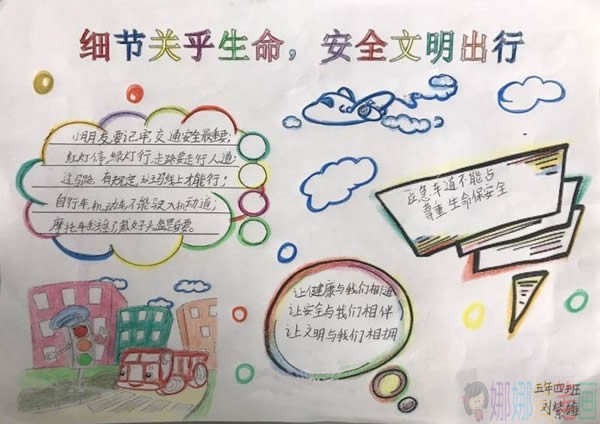 细节关乎生命，安全文明出行
小朋友要记牢，交通安全最重要；
红灯停，绿灯行，走路要走行人道；
过马路，有规定，斑马线上才能行；
自行车机动车不能驶入机动道；
摩托车
戴好头盔
要。
应急车道不能占
尊重生命保安全
让健康与我们相
让安全与我们相伴
让文明与我们相拥
五年四班
刘紫
娜娜
画